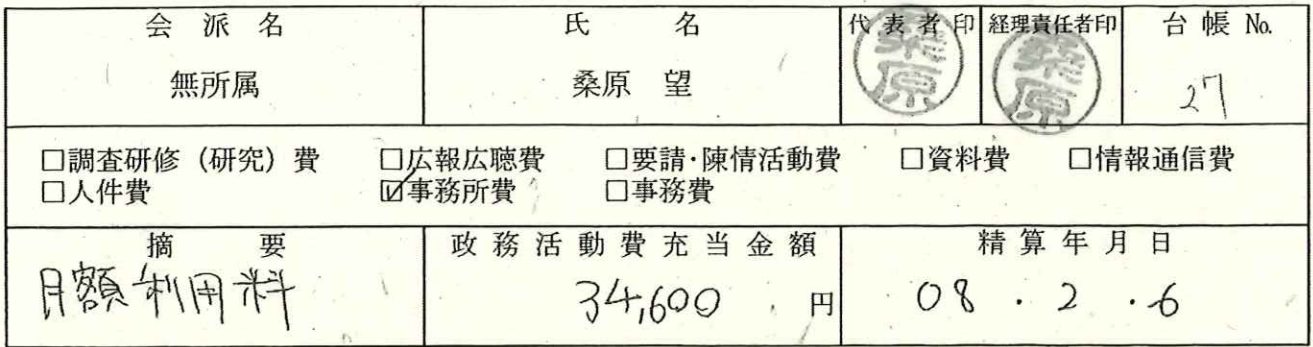 会派名 氏名 代表者印 経理責任者印 台帳 No.
無所属 桑原 望 桑原 桑原 27
□調査研修（研究）費 □広報広聴費 □要請・陳情活動費 □資料費 □情報通信費
□人件費 ☑事務所費 □事務費
摘要 政務活動費充当金額 精算年月日
月額利用料 34,600 円 08．2．6